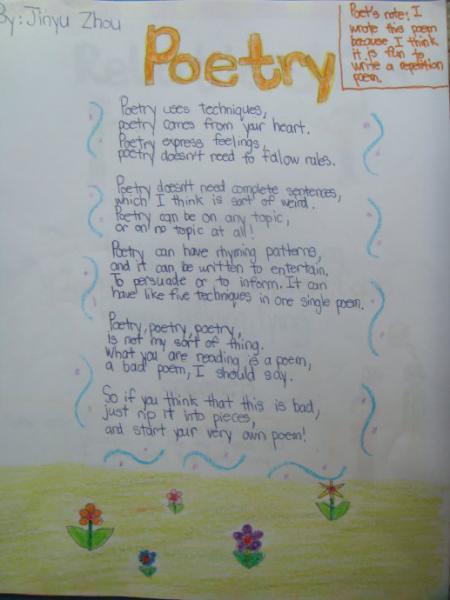 By: Jinyu Zhou
Poetry
Poet's note: I
wrote this poem
because I think
it is fun to
write a repetition
poem.
Poetry uses techniques,
poetry comes from your heart.
Poetry express feelings,
poetry doesn't need to fallow rules.
Poetry doesn't need complete sentences,
which I think is sort of weird.
Poetry can be on any topic,
or on no topic at all!
Poetry can have rhyming patterns,
and it can be written to entertain,
To persuade or to inform. It can
have like five techniques in one single poem.
Poetry, poetry, poetry,
Is not my sort of thing.
What you are reading is a poem,
a bad poem, I should say.
So if you think that this is bad,
just rip it into pieces,
and start your very own poem!